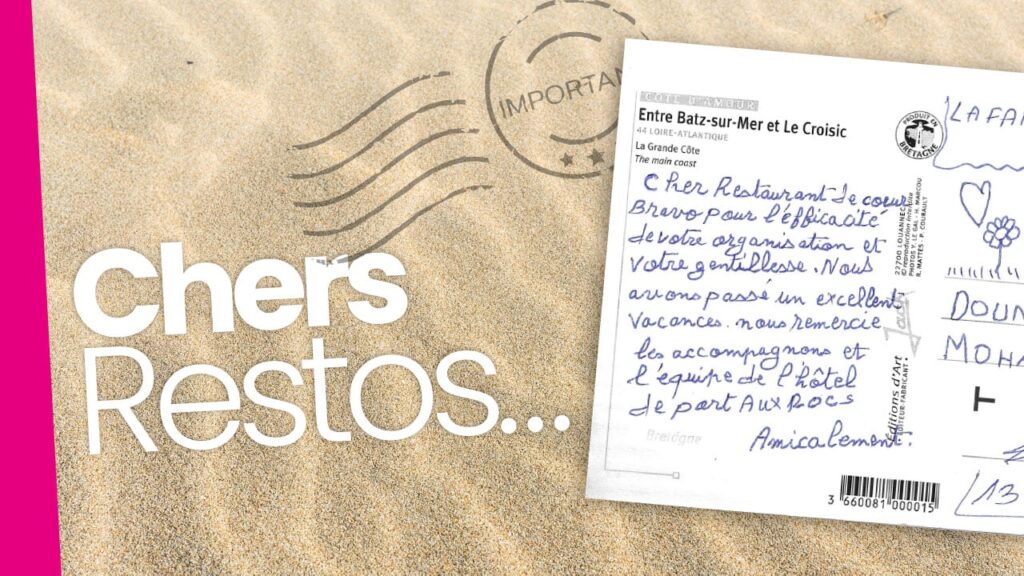 IMPORTAN
Chers
Restos...
CÔTE D'AMOUR
Entre Batz-sur-Mer et Le Croisic
44 LOIRE-ATLANTIQUE
La Grande Côte
The main coast
Cher Restaurant de coeur
Bravo pour l'éfficacité
de votre organisation et
votre gentillesse. Nous
avons passé un excellent
vacances. nous remercie
les accompagnons et
l'équipe de l'hôtel
de port AUX ROCS
Amicalement.
Bretagne
PRODUIT EN
BRETAGNE
22700 LOUANNEC
© reproduction interdite
PHOTOS Y. LE GAL - H. MARCOU
R. MATTES - P. COURAULT
Jack
Editions d'Art
EDITEUR-FABRICANT
3 660081 000015
LA FA
DOUN
MOHA
T
13